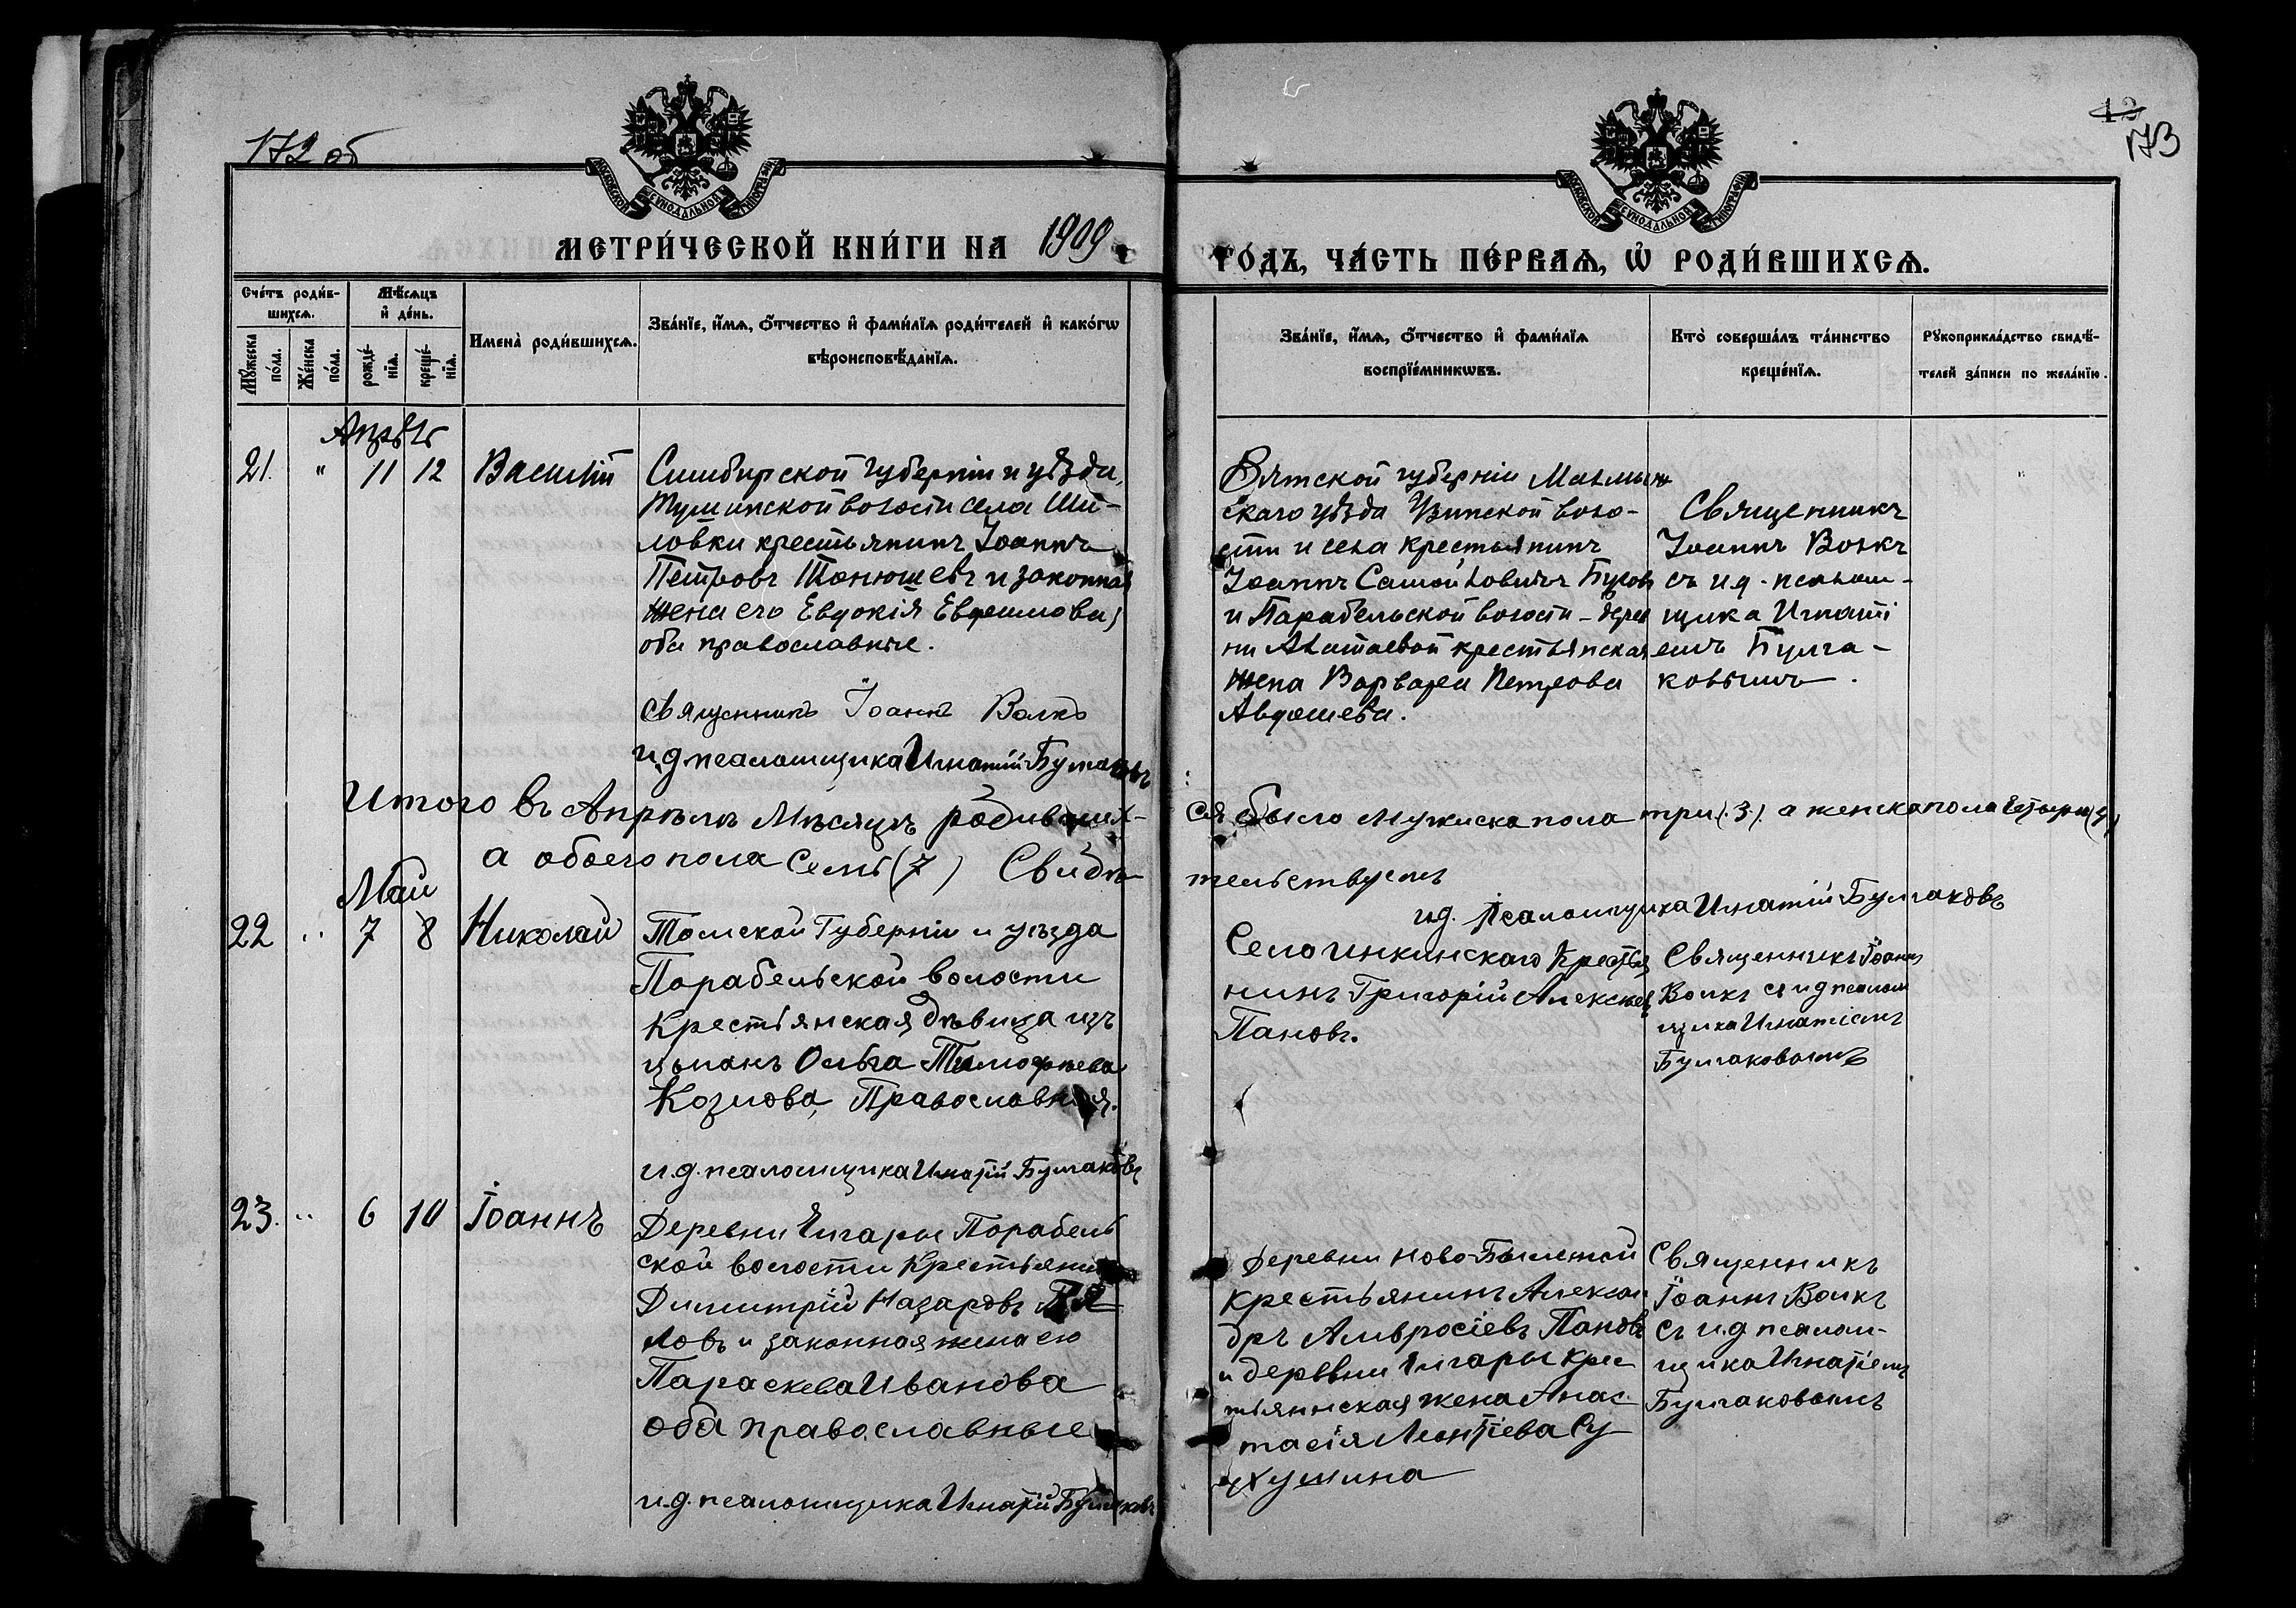 172 об
173
МОСКОВСКОЙ СѴНОДАЛЬНОЙ ТИПОГРАФІИ
МОСКОВСКОЙ СѴНОДАЛЬНОЙ ТИПОГРАФІИ
МЕТРИ́ЧЕСКОЙ КНИ́ГИ НА 1909
ГО́ДЪ, ЧА́СТЬ ПЕ́РВАѦ, Ѽ РОДИ́ВШИХСѦ.
Сче́тъ роди́в-
шихсѧ.
Мѣ́сѧцъ
и҆ де́нь.
Му́жеска
по́ла.
Же́нска
по́ла.
рожде́-
нїѧ.
креще́-
нїѧ.
Имена̀ роди́вшихсѧ.
Зва́нїе, и҆́мѧ, ѻ҆́тчество и҆ фами́лїѧ роди́телей и҆ како́гѡ
вѣроисповѣ́данїѧ.
Зва́нїе, и҆́мѧ, ѻ҆́тчество и҆ фами́лїѧ
воспрїе́мникѡвъ.
Кто̀ соверша́лъ та́инство
креще́нїѧ.
Рꙋкоприкла́дство свидѣ́-
телей за́писи по жела́нїю.
Апрѣль
21. " 11 12 Василій
Симбирской губерніи и уѣзда,
Тушинской волости села Ши-
ловки крестьянинъ Іоаннъ
Петровъ Тонюшевъ и законная
жена его Евдокія Евфимова,
оба православные.
Священникъ Іоаннъ Волкъ
и.д. псаломщика Игнатій Булгаковъ
Вятской губерніи Малмыж
скаго уѣзда Узинской воло-
сти и села крестьянинъ
Іоаннъ Самойловичъ
и Парабельской волости - дерев
ни Алатаевой крестьянская
жена Варвара Петрова
Авдошева.
Священникъ
Іоаннъ Волкъ
съ и.д. псалом-
щика Игнаті
емъ Булга-
ковымъ.
Итого въ Апрѣлѣ Мѣсяцѣ родивших-
ся было мужеска пола три (3) а женска пола четыре (4)
а обоего пола семь (7) Свидѣ
тельствуемъ
и.д. псаломщика Игнатій Булгаковъ
Май
22 " 7 8 Николай
Томской Губерніи и уѣзда
Парабельской волости
Крестьянская дѣвица изъ
Ольга Тимофѣева
Козлова, Православная.
и.д. псаломщика Игнатій Булгаковъ
Село Инкинскаго Крестья
нинъ Григорій Алексѣевъ
Пановъ.
Священникъ Іоаннъ
Волкъ съ и.д. псалом
щика Игнатіемъ
Булгаковымъ
23. " 6 10 Іоаннъ
Деревни Чигары Парабель
ской волости Крестьянинъ
Димитрій Назаровъ
ловъ и законная жена его
Параскева Иванова
оба православные
и.д. псаломщика Игнатій Булгаковъ
Деревни Ново-
крестьянинъ Алексан
дръ Амвросіевъ Пановъ
и деревни Чигары крес
тьянская жена Анас
тасія Леонтіева Су
хушина
Священникъ
Іоаннъ Волкъ
съ и.д. псалом-
щика Игнатіемъ
Булгаковымъ